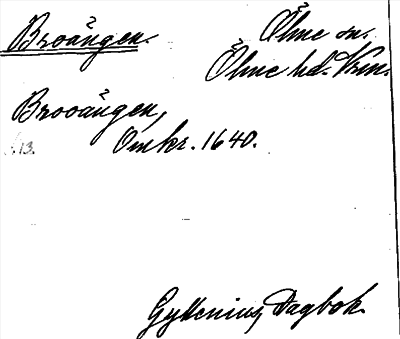 Broängen.
Ölme sn.
Ölme hd. Vrm.
Brooängen,
Omkr. 1640.
13.
Gyllenius, Dagbok.